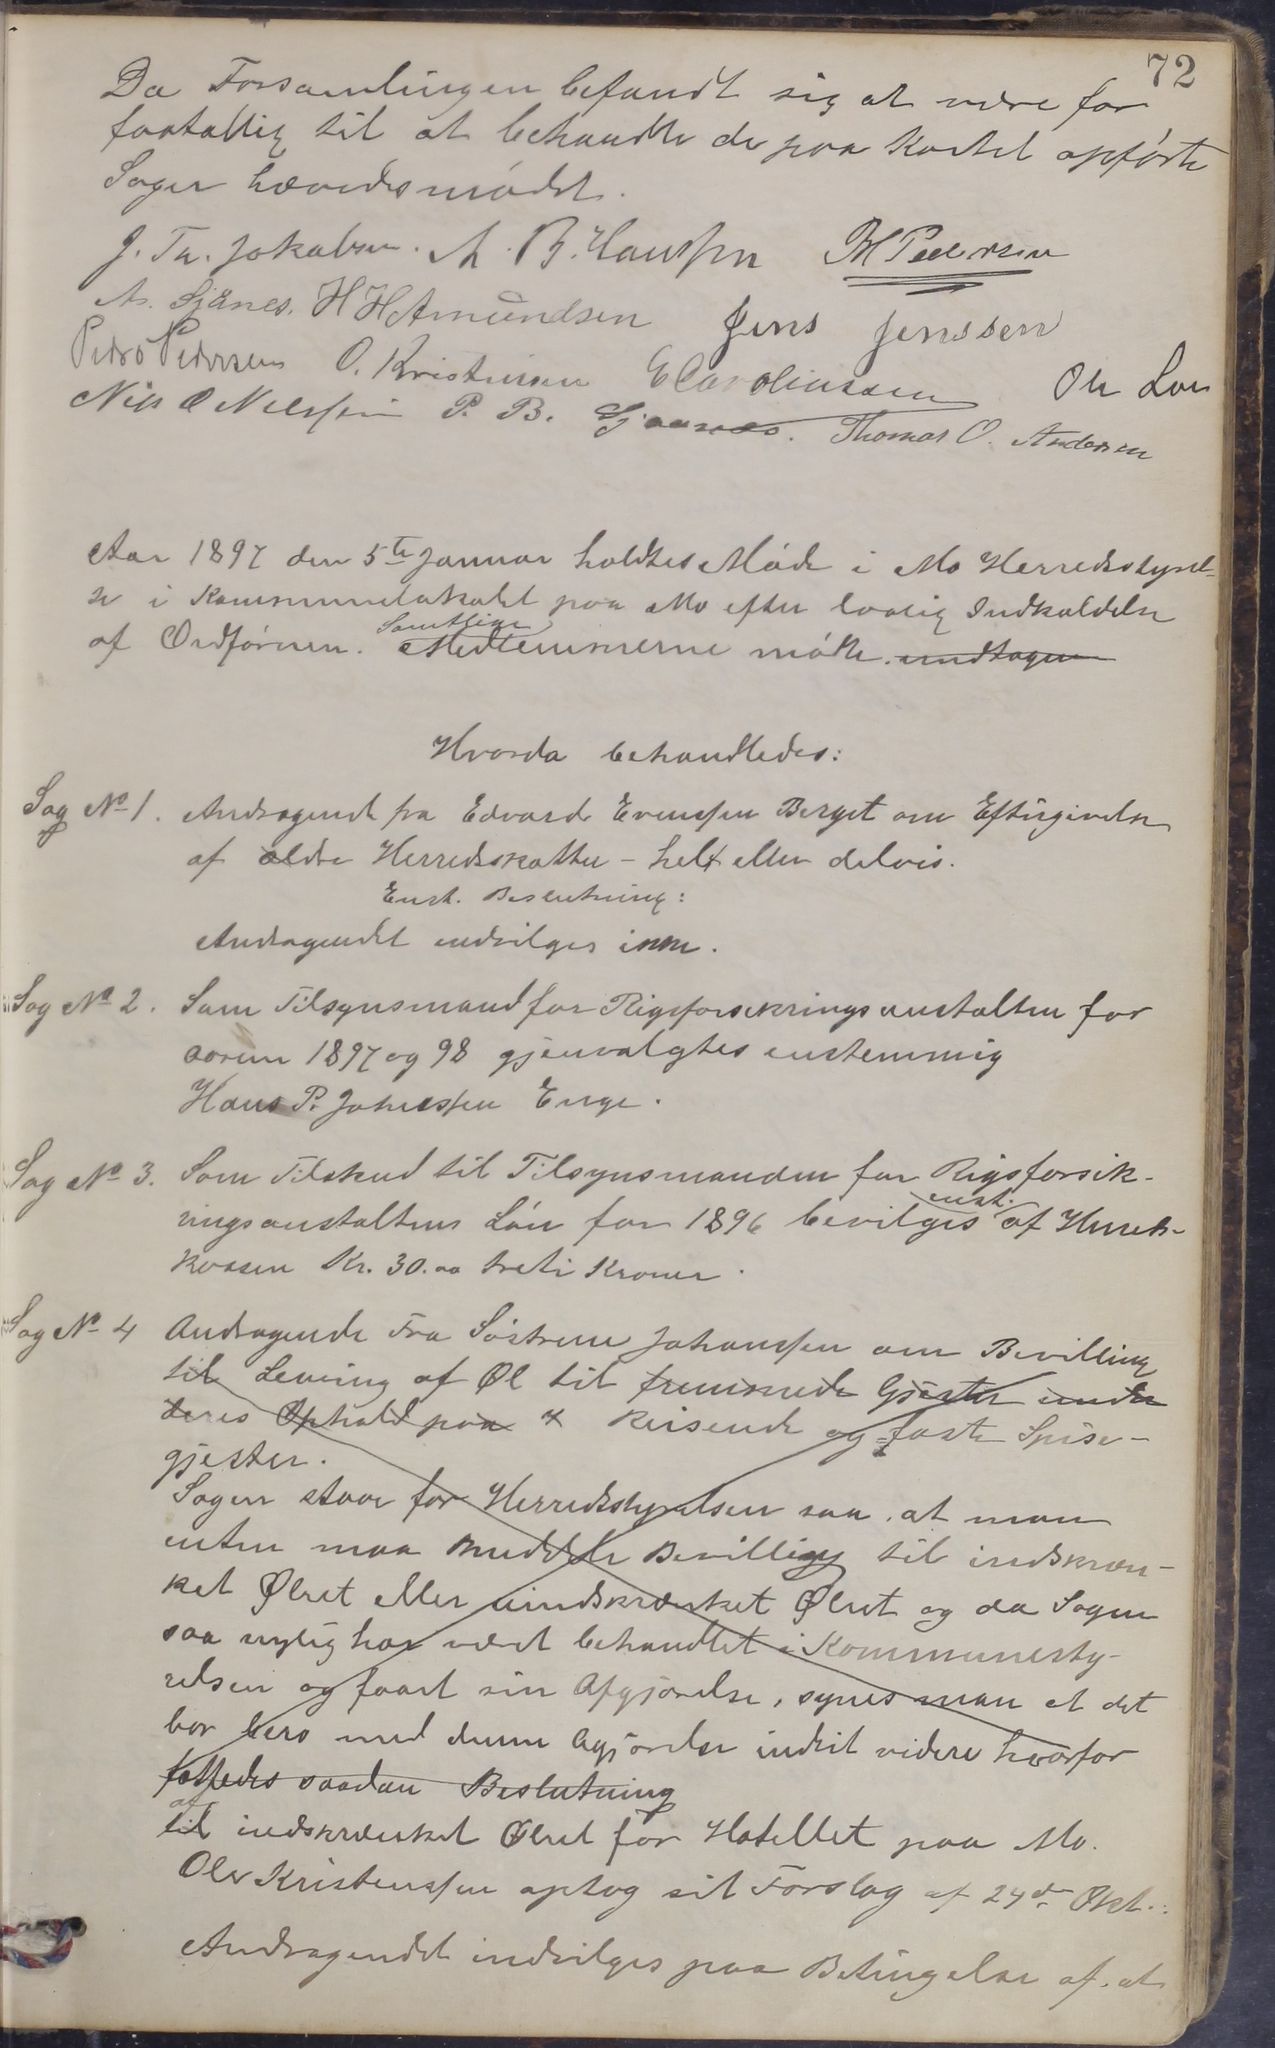 72
Da Forsamlingen befandt sig at være for
faatallig til at behandle de paa Kartet opførte
Sager hævedes mødet.
J. Th. Jakobsen. A. B. Hanssen PM Pedersen
A. Sjånes. H H Amundsen Jens Jenssen
Peder Pedersen O. Kristensen E Carolinssen Ole Lon
Nils O Nilssen P. B. Sjaanes. Thomas O. Andersen
Aar 1897 den 5te Januar holdtes Møde i Mo Herredsstyrel-
se i Kommunelokalet paa Mo efter lovlig Indkaldelse
af Ordføreren. Samtlige Medlemmerne mødte. undtagen
Hvorda behandledes:
Sag No 1. Andragende fra Edvard Evenssen Berget om Eftergivelse
af ældre Herredsskatter - helt eller delvis.
Enst. Beslutning:
Andragendet indvilges ikke.
Sag No 2. Som Tilsynsmand for Rigsforsikringsanstalten for
aarene 1897 og 98 gjenvalgtes enstemmig
Hans P. Johanssen Enge.
Sag No 3. Som Tilskud til Tilsynsmanden for Rigsforsik-
ringsanstaltens Løn for 1896 bevilges enst. af Herreds-
kassen Kr. 30.00 treti Kroner.
Sag No 4 Andragende Fra Søstrene Johanssen om Bevilling
til Levering af Øl til fremmede Gjester under
deres Ophold paa & Reisende og faste Spise-
gjester.
Sagen staar for Herredsstyrelsen saa, at man
enten maa meddele Bevilling til indskræn-
ket Ølret eller uindskrænket Ølret og da Sagen
saa nylig har været behandlet i Kommunesty-
relsen og faaet sin Afgjørelse, synes man at det
bør bero med denne Agjørelse indtil videre hvorfor
fattedes saadan Beslutning
til af indskrænket Ølret for Hotellet paa Mo.
Ole Kristenssen optog sit Forslag af 24de Okt.:
Andragendet indvilges paa Betingelse af, at